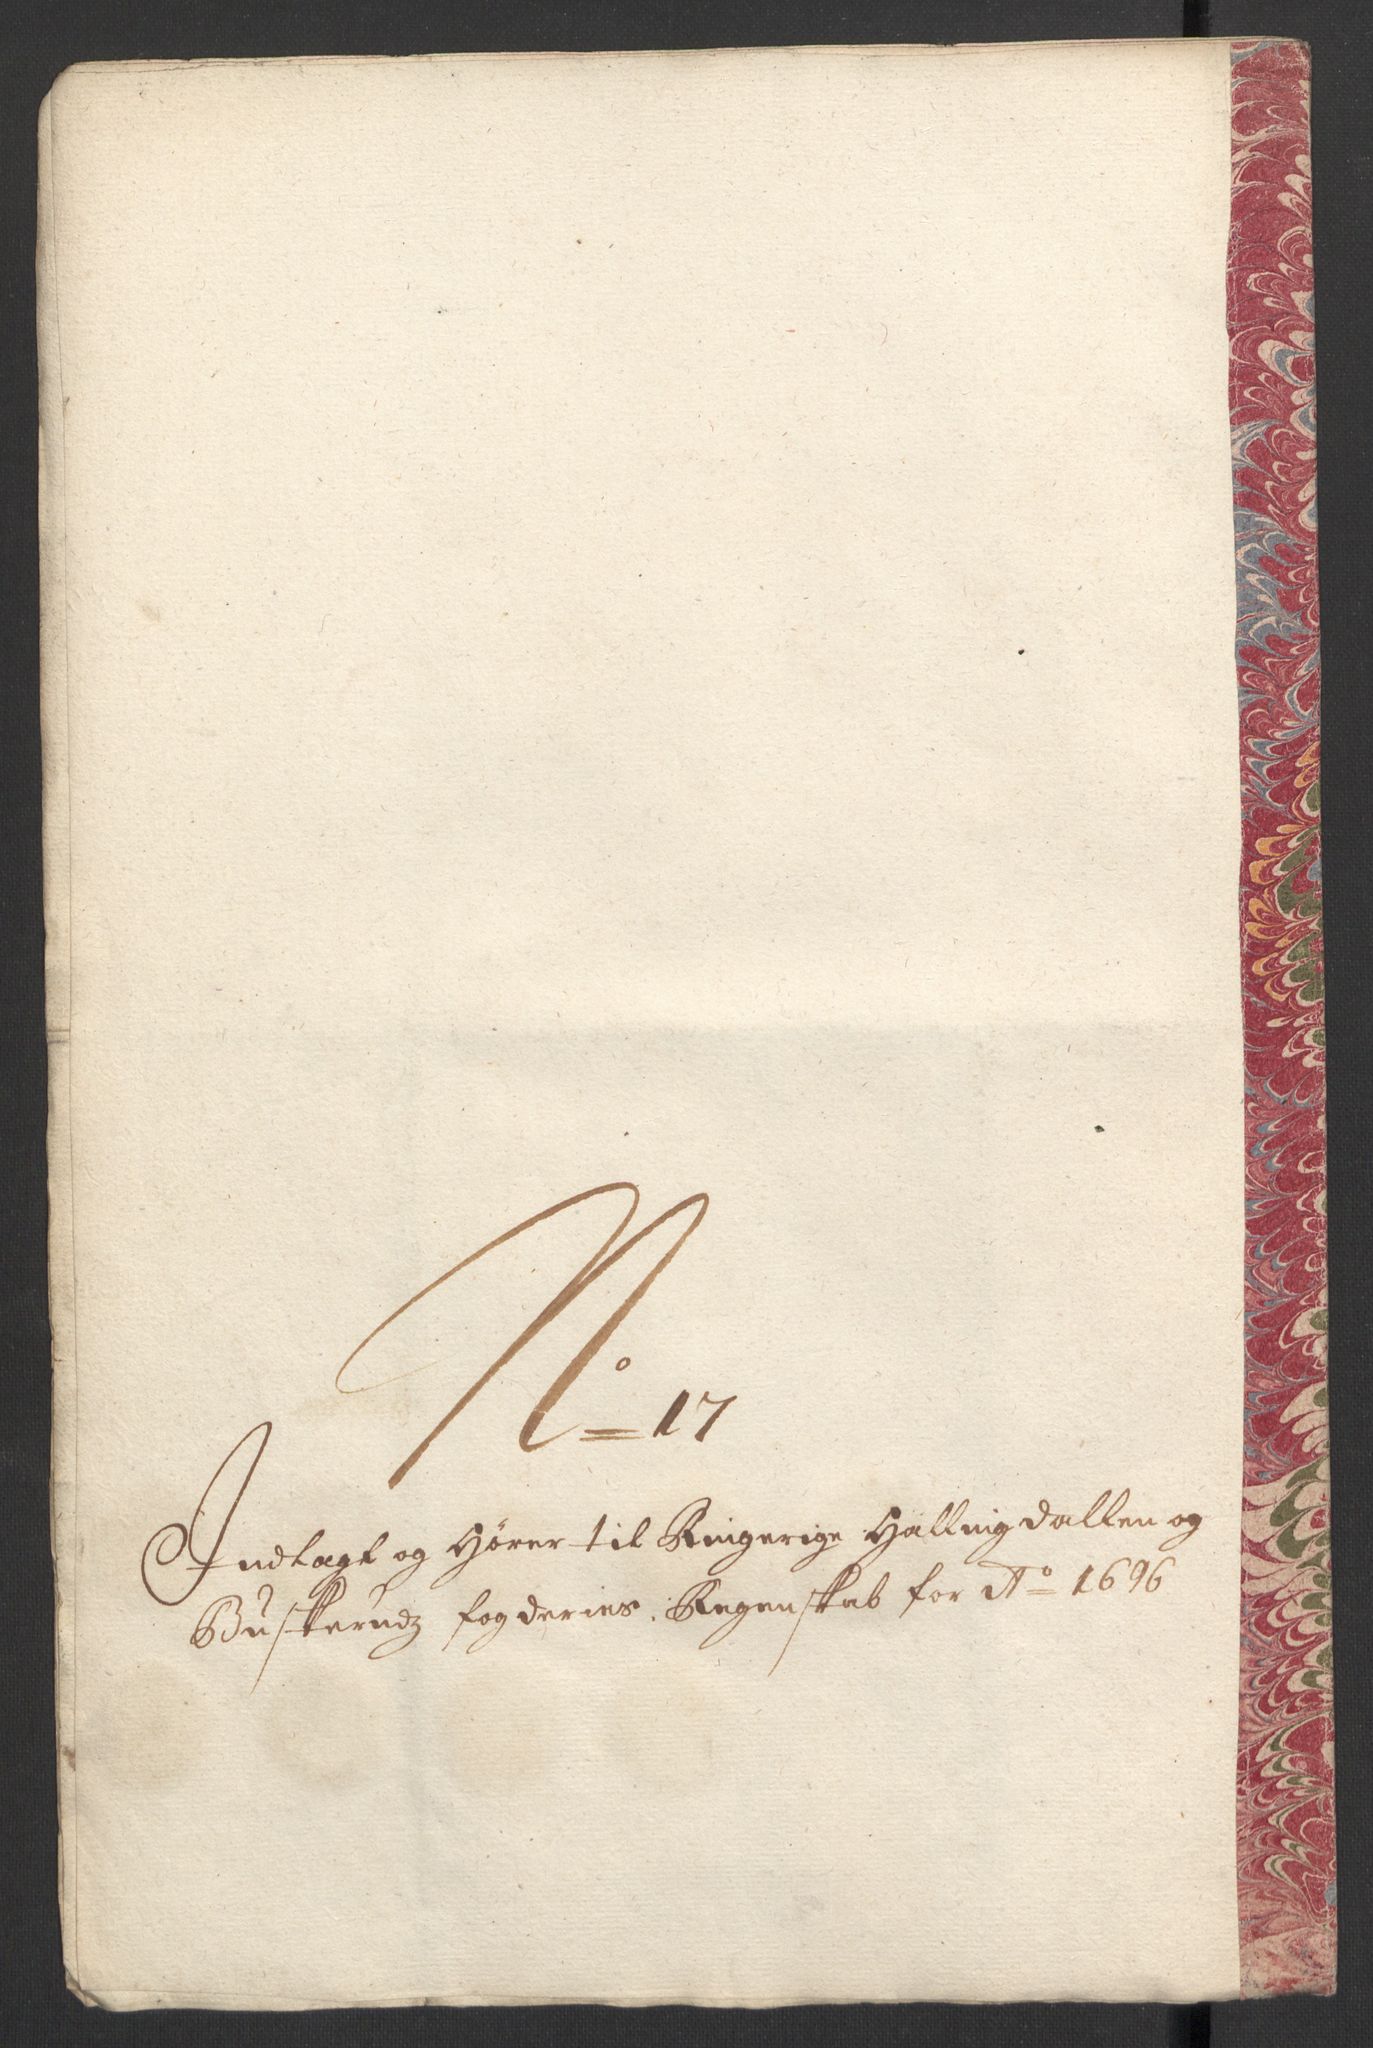 No 17
Indlagt og Hører til Ringerige Hallingdallen og
Buskerudz fogderies Regenskab for Ao 1696